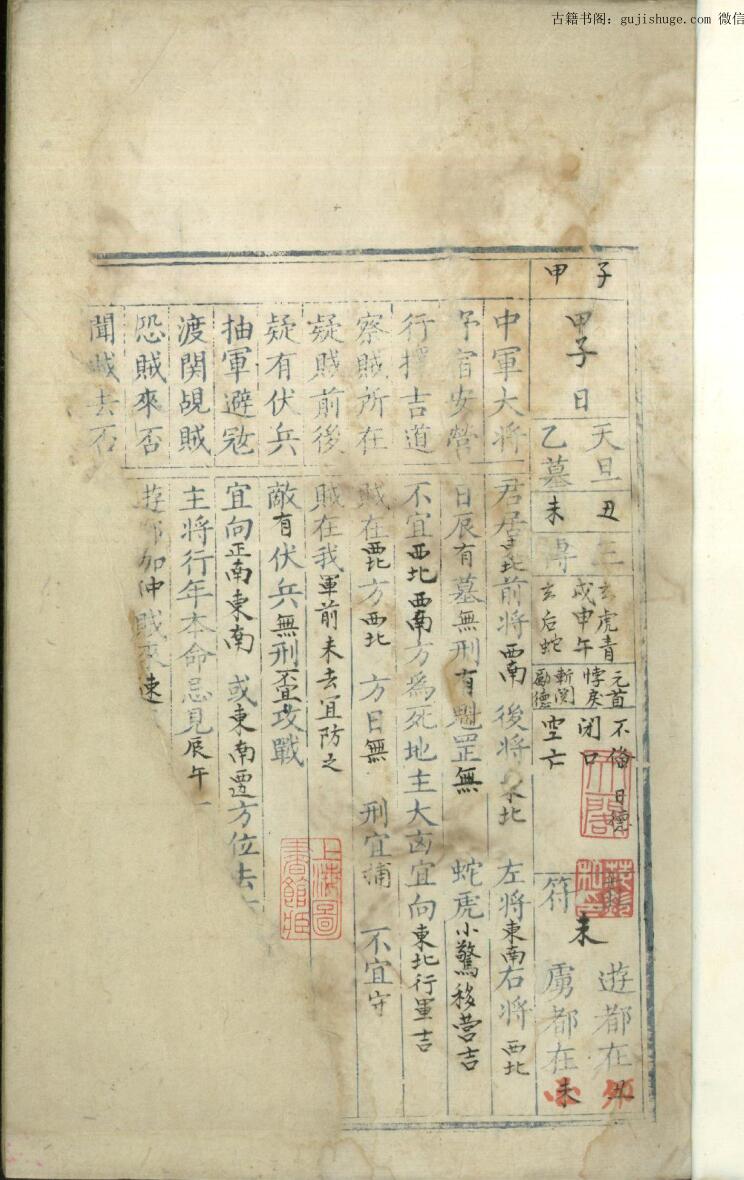 古籍书阁：gujishuge.com 微信
子
甲
甲子日
天旦
乙墓
丑
未
玄虎青
戌申午
玄后蛇
元首
悖戾
斬関
勵德
不俻 日德
闭口
空亡
符
未
遊都在丑
虏都在未
中軍大将
君居 前将西南 後将 北 左将東南右将西北
宿安營
日辰有墓無刑有魁罡無 蛇虎小驚移营吉
行擇吉道
不宜西北西南方為死地主大凶宜向東北行軍吉
察賊所在
賊在 方西北 方日無 刑宜捕 不宜守
疑賊前後
賊在我軍前未去宜防之
疑有伏兵
敵有伏兵無刑 攻戰
抽軍避寇
宜向正南東南 或東南 方位去
渡関覘賊
主将行年本命忌見辰午
恐賊來否
遊都加仲賊來速
聞賊去否
上海圖
書館臧